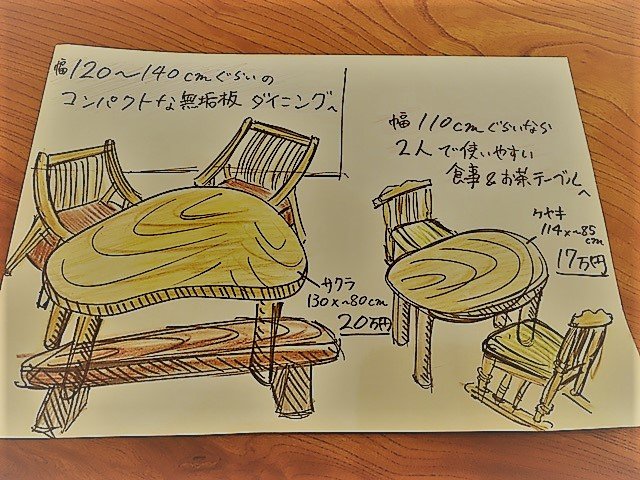 幅120〜140cmぐらいの
コンパクトな無垢板ダイニングへ
幅110cmぐらいなら
2人で使いやすい
食事&お茶テーブルへ
ケヤキ
114×〜85
cm
17万円
サクラ
130×〜80cm
20万円